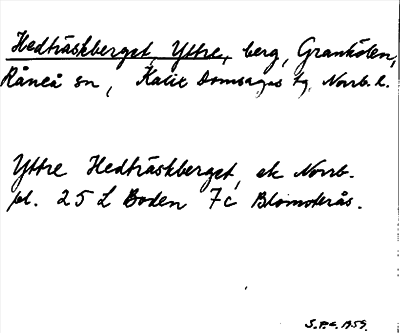 Hedträskberget, Yttre, berg, Granhölen,
Råneå sn, Kalix Domsagas tg, Norrb. l.
Yttre Hedträskberget, ek Norrb.
bl. 25 L Boden 7c Blomderås.
S.P.C. 1959.